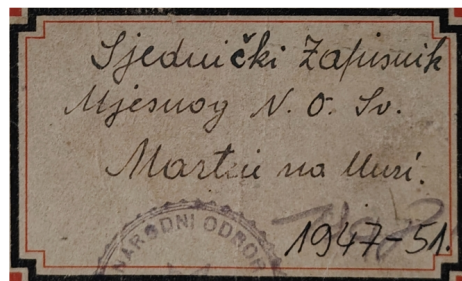 Sjednički Zapisnik
Mjesnog N. O. Sv.
Martin na Muri.
NARODNI ODBOR
1947-51.